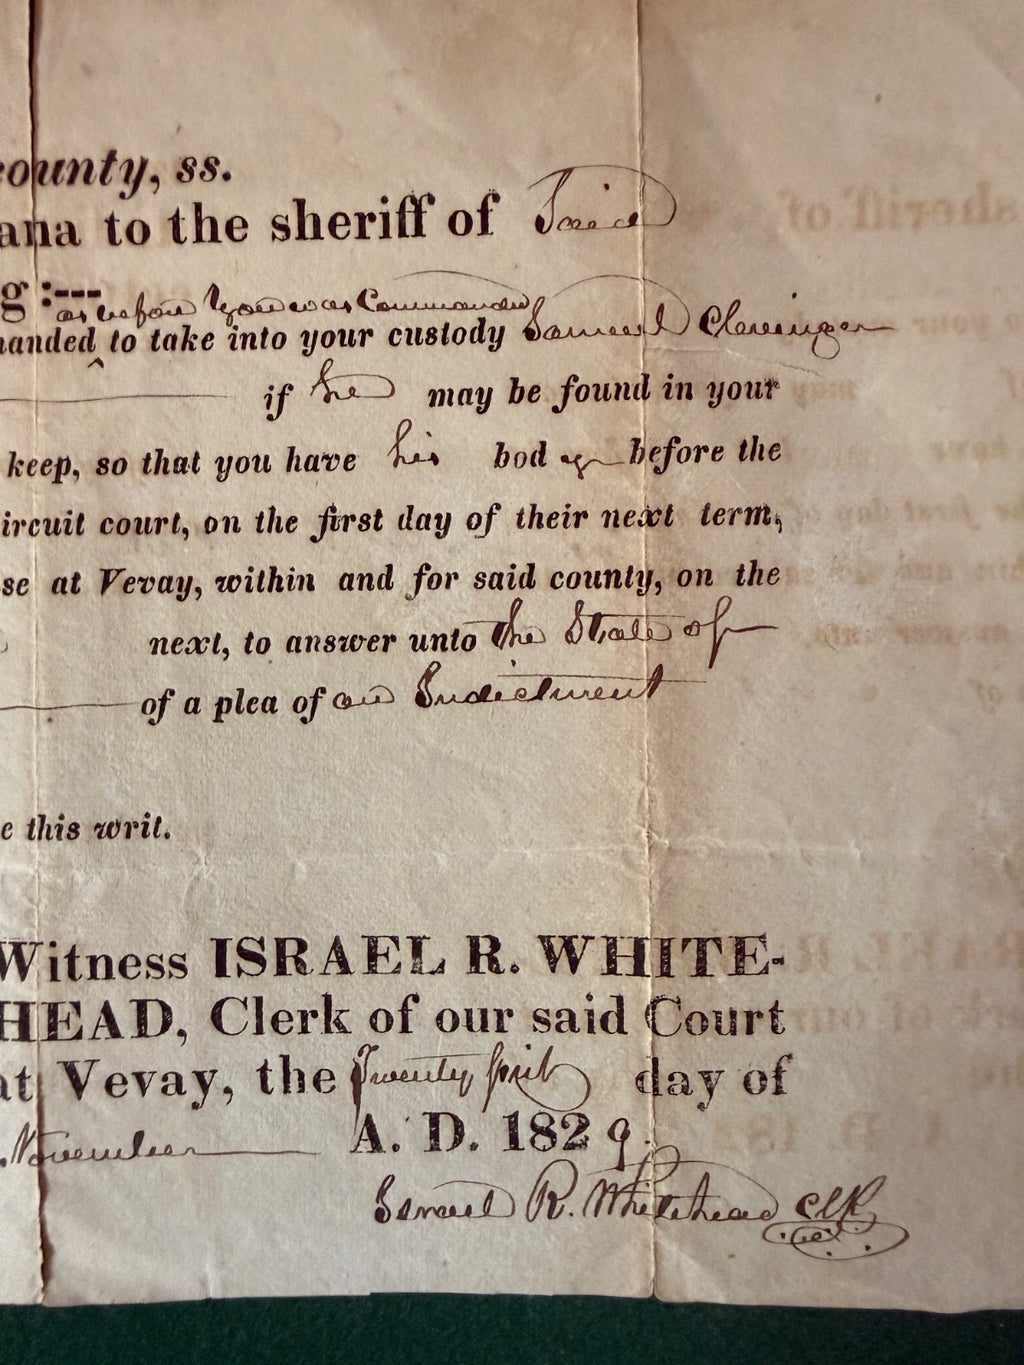 county, ss.
ana to the sheriff of Said
g :---
as before you was Commanded
manded ^ to take into your custody Samuel Clevinger
if he may be found in your
keep, so that you have his body before the
ircuit court, on the first day of their next term,
se at Vevay, within and for said county, on the
next, to answer unto the State of
of a plea of an Indictment
e this writ.
Witness ISRAEL R. WHITE-
HEAD, Clerk of our said Court
at Vevay, the Twenty first day of
November A. D. 1829.
Israel R. Whitehead Clk